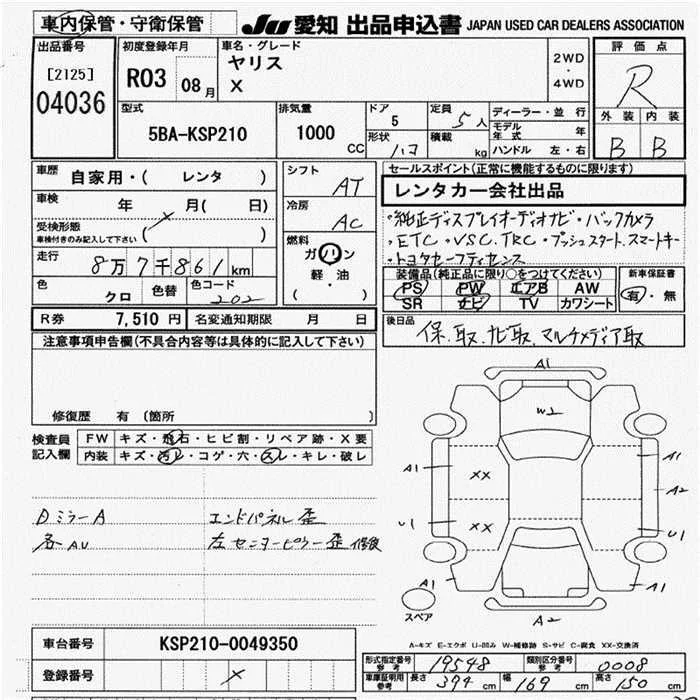 車内保管・守衛保管 JU 愛知 出品申込書 JAPAN USED CAR DEALERS ASSOCIATION
出品番号 初度登録年月 車名・グレード 評価点
[2125] R03 08月 ヤリス 2WD
04036 X ・ 4WD R
型式 排気量 ドア 定員 ディーラー・並行 外装 内装
5BA-KSP210 1000 CC 5 5人 モデル年式 年 B B
形状 ハコ 積載 kg ハンドル 左・右
車歴 自家用・( レンタ ) シフト AT セールスポイント(正常に機能するものに限ります)
車検 年 月( 日) 冷房 AC レンタカー会社出品
受検形態 ( ) ・純正ディスプレイオーディオナビ・バックカメラ
車検付きのみ記入して下さい 燃料 ・ETC・VSC.TRC・プッシュスタート.スマートキー
走行 8万7千861km ガソリン ・トヨタセーフティセンス
軽・油
( )
色 クロ 色替 色コード 202 装備品(純正品に限り○をつけてください) 新車保証書
PS PW エアB AW 有・無
SR ナビ TV カワシート
R券 7,510 円 名変通知期限 月 日 後日品
保.取.ナビ取.マルチメディア取
注意事項申告欄(不具合内容等は具体的に記入して下さい)
修復歴 有 (箇所 )
検査員 FW キズ・飛石・ヒビ割・リペア跡・X要
記入欄 内装 キズ・汚レ・コゲ・穴・スレ・キレ・破レ
DミラーA エンドパネル歪
各AU 左センターピラー歪 修後
A1
W2
A1 XX A1
A2
U1 XX U1
A1 A1
スペア A2
A-キズ E-エクボ U-凹み W-補修跡 S-サビ C-腐食 XX-交換済
車台番号 KSP210-0049350
登録番号
形式指定番号 参考 19548 類別区分番号 参考 0008
車庫証明用 参考 長さ 394 cm 幅 169 cm 高さ 150 cm